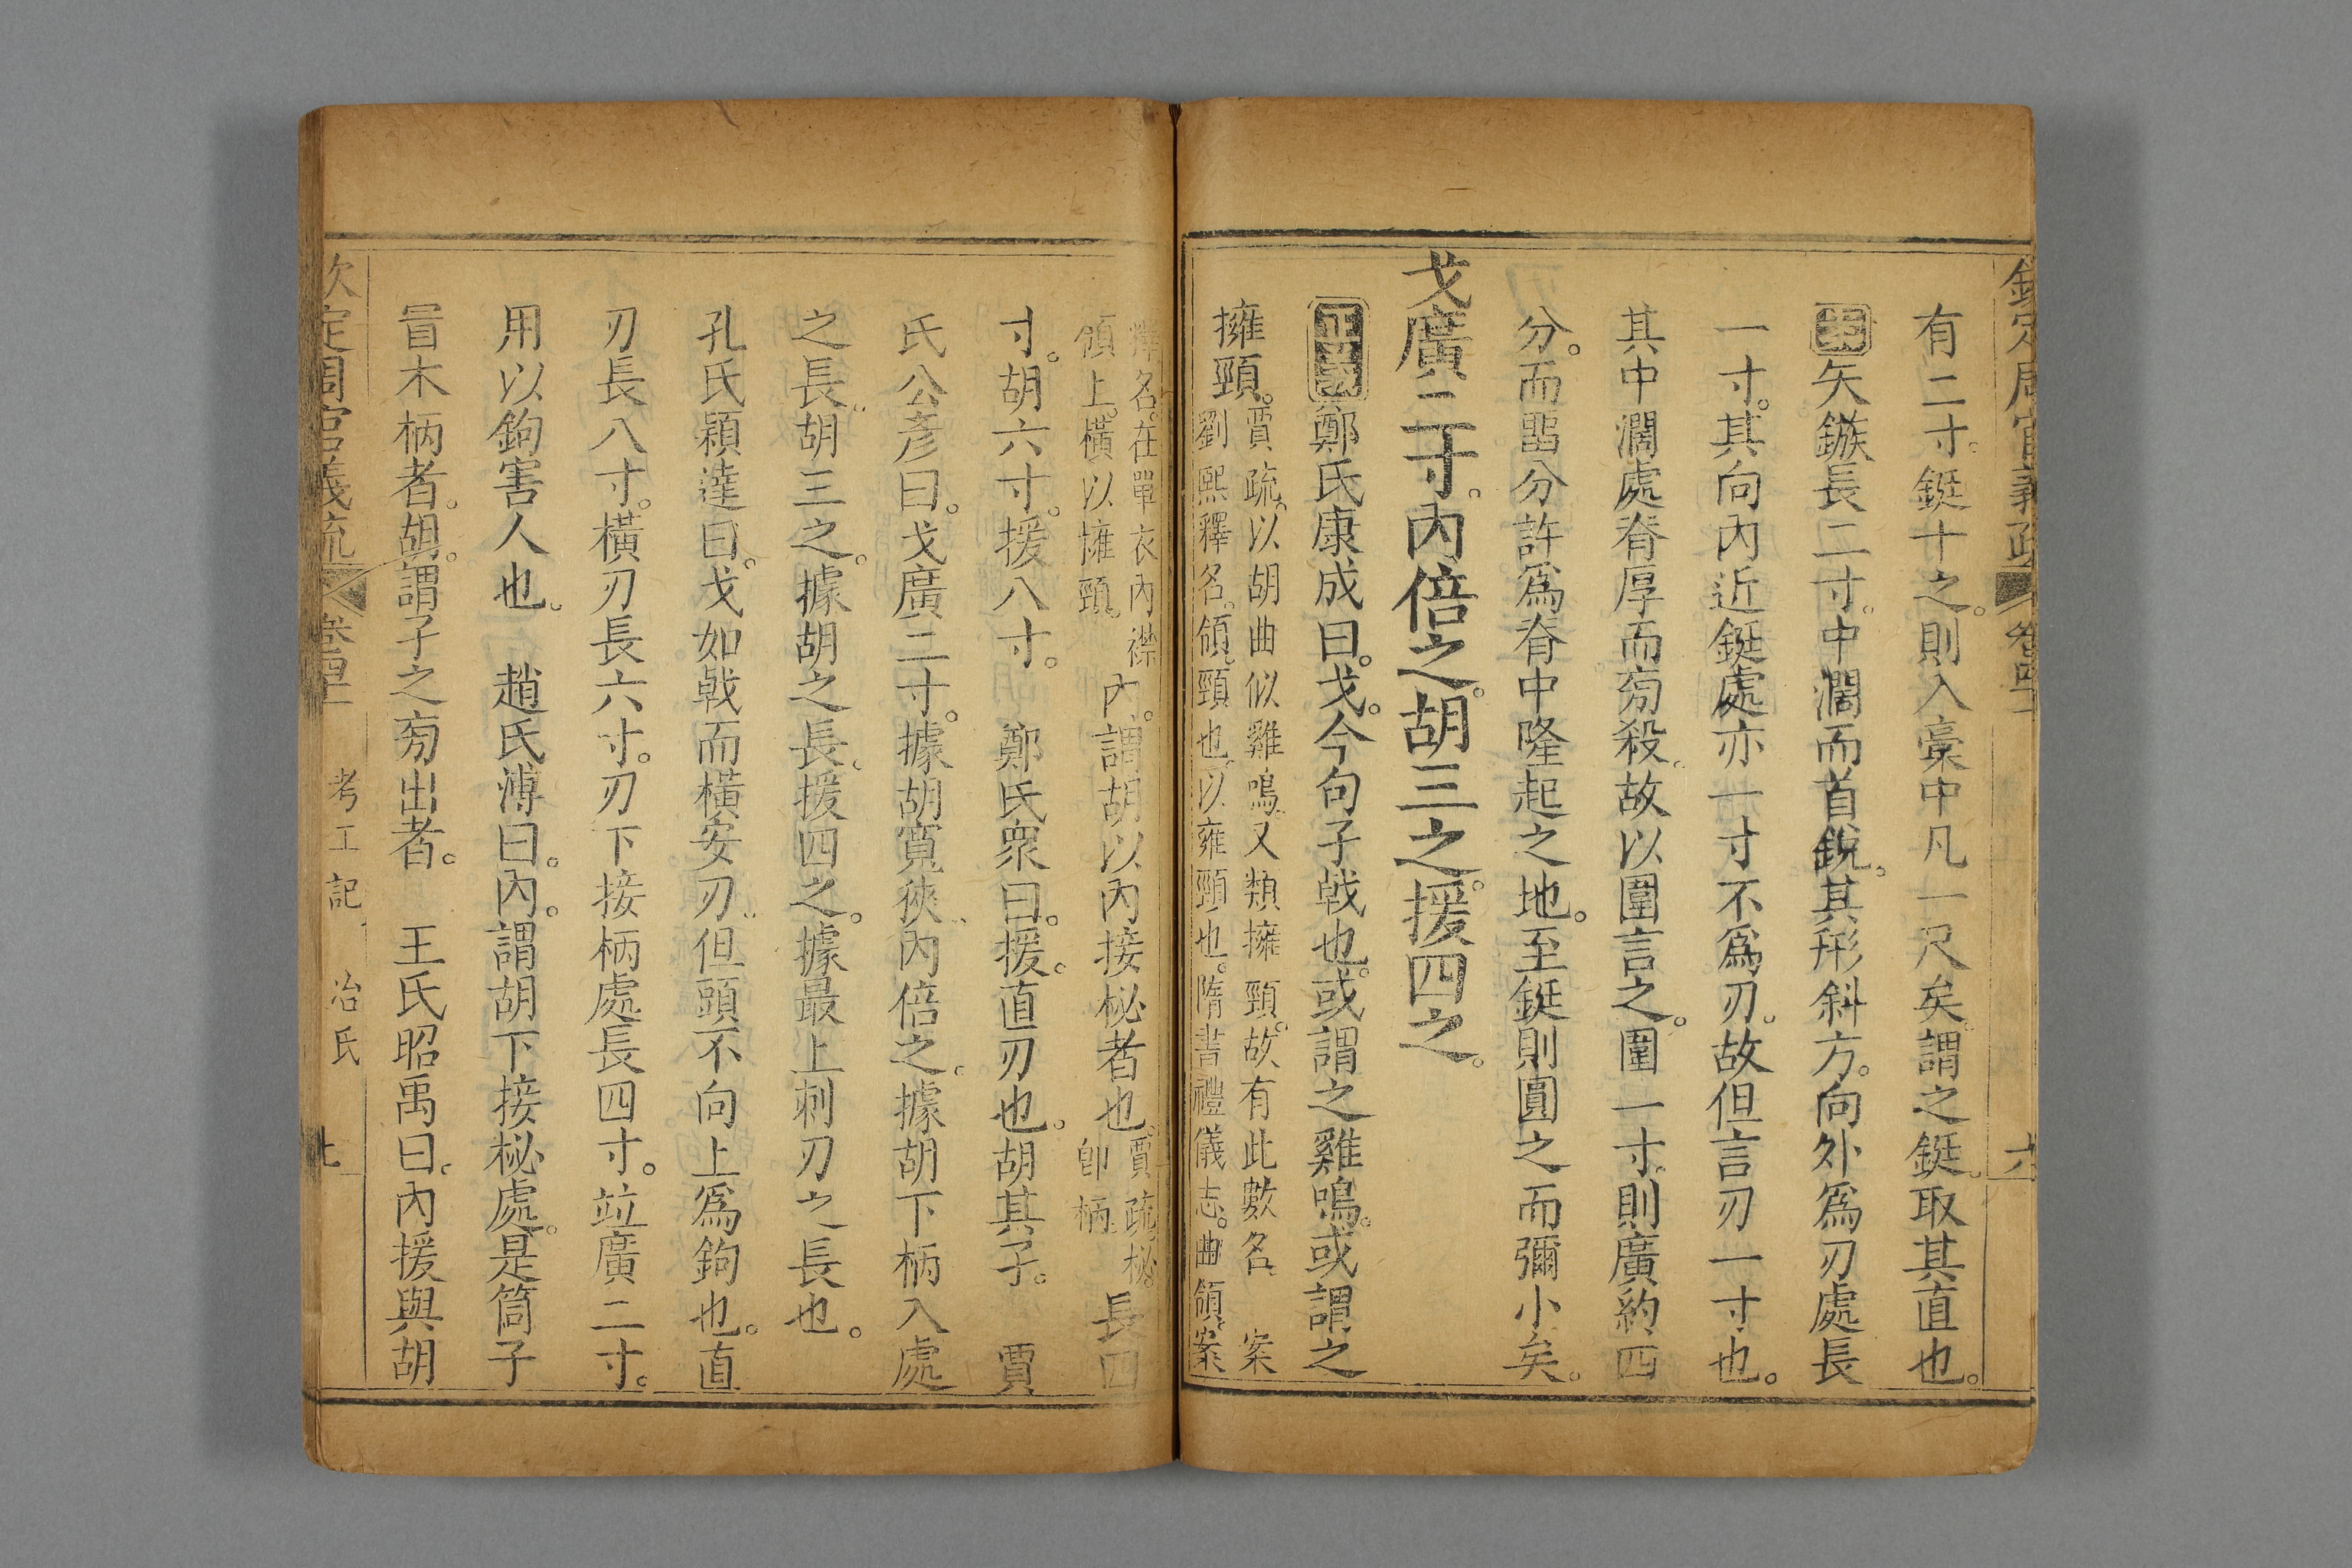 欽定周官義疏 卷四十一 六
有二寸。鋌十之。則入槀中凡一尺矣。謂之鋌。取其直也。
矢鏃長二寸。中濶而首銳。其形斜方。向外爲刃處長
一寸。其向內近鋌處亦一寸不爲刃。故但言刃一寸也。
其中濶處脊厚而旁殺。故以圍言之。圍一寸。則廣約四
分。而畱分許爲脊中隆起之地。至鋌則圓之而彌小矣。
戈廣二寸。內倍之。胡三之。援四之。
正義鄭氏康成曰。戈。今句孑戟也。或謂之雞鳴。或謂之
擁頸。
賈疏。以胡曲似雞鳴。又類擁頸。故有此數名。 案
劉熙釋名。領。頸也。以雍頸也。隋書禮儀志。曲領。案
釋名。在單衣內襟
領上。橫以擁頸。
內。謂胡以內接柲者也。
賈疏。柲。
卽柄。
長四
寸。胡六寸。援八寸。 鄭氏衆曰。援。直刃也。胡其孑。 賈
氏公彥曰。戈廣二寸。據胡寬狹。內倍之。據胡下柄入處
之長。胡三之。據胡之長。援四之。據最上刺刃之長也。
孔氏穎達曰。戈如戟而橫安刃。但頭不向上爲鉤也。直
刃長八寸。橫刃長六寸。刃下接柄處長四寸。竝廣二寸。
用以鉤害人也。 趙氏溥曰。內。謂胡下接柲處。是筒子
冒木柄者。胡。謂孑之旁出者。 王氏昭禹曰。內援與胡
欽定周官義疏 卷四十一 考工記 冶氏 七